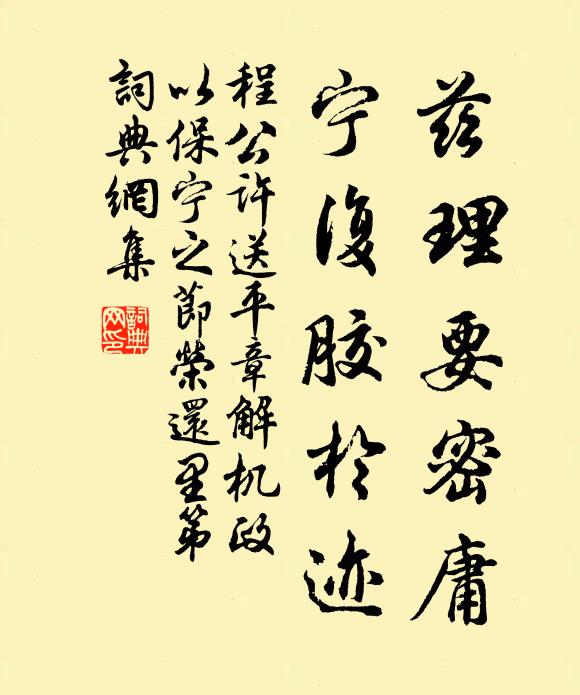 兹理要密庸
宁復胶於迹
程公许送平章解机政
以保宁之節榮還里第
詞典網集
詞典网印